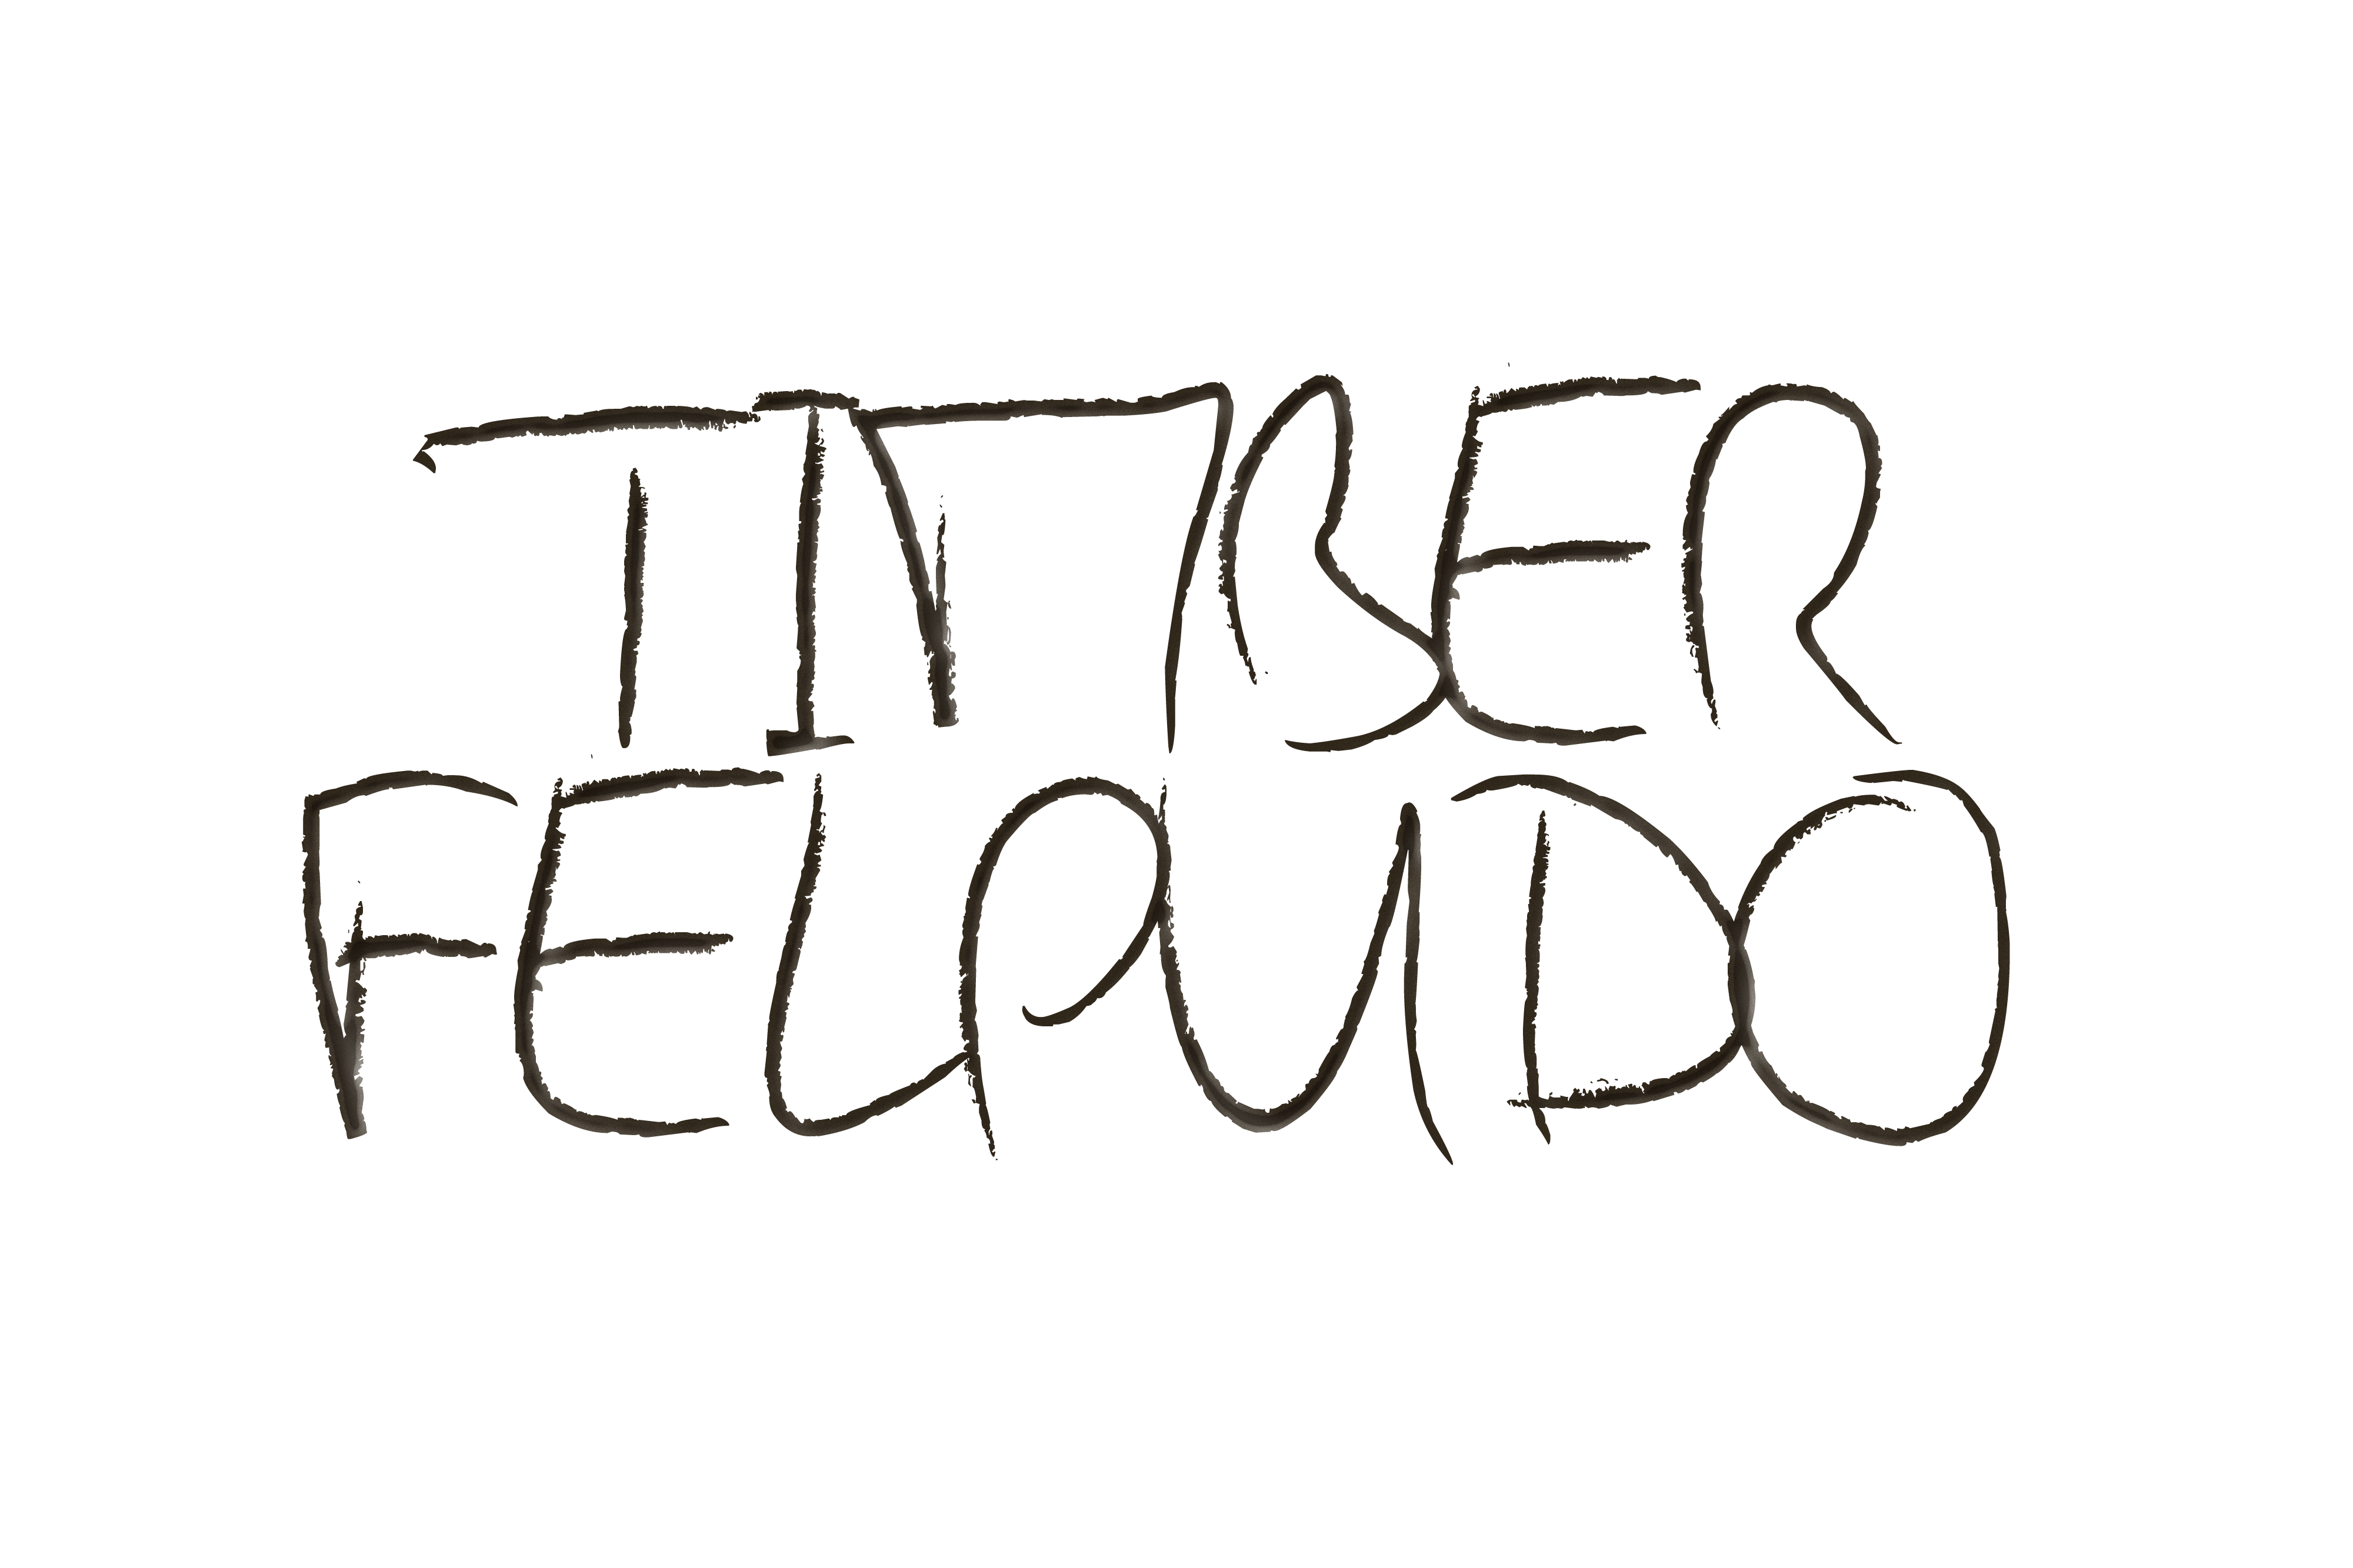 TIMBER
FELPUDO